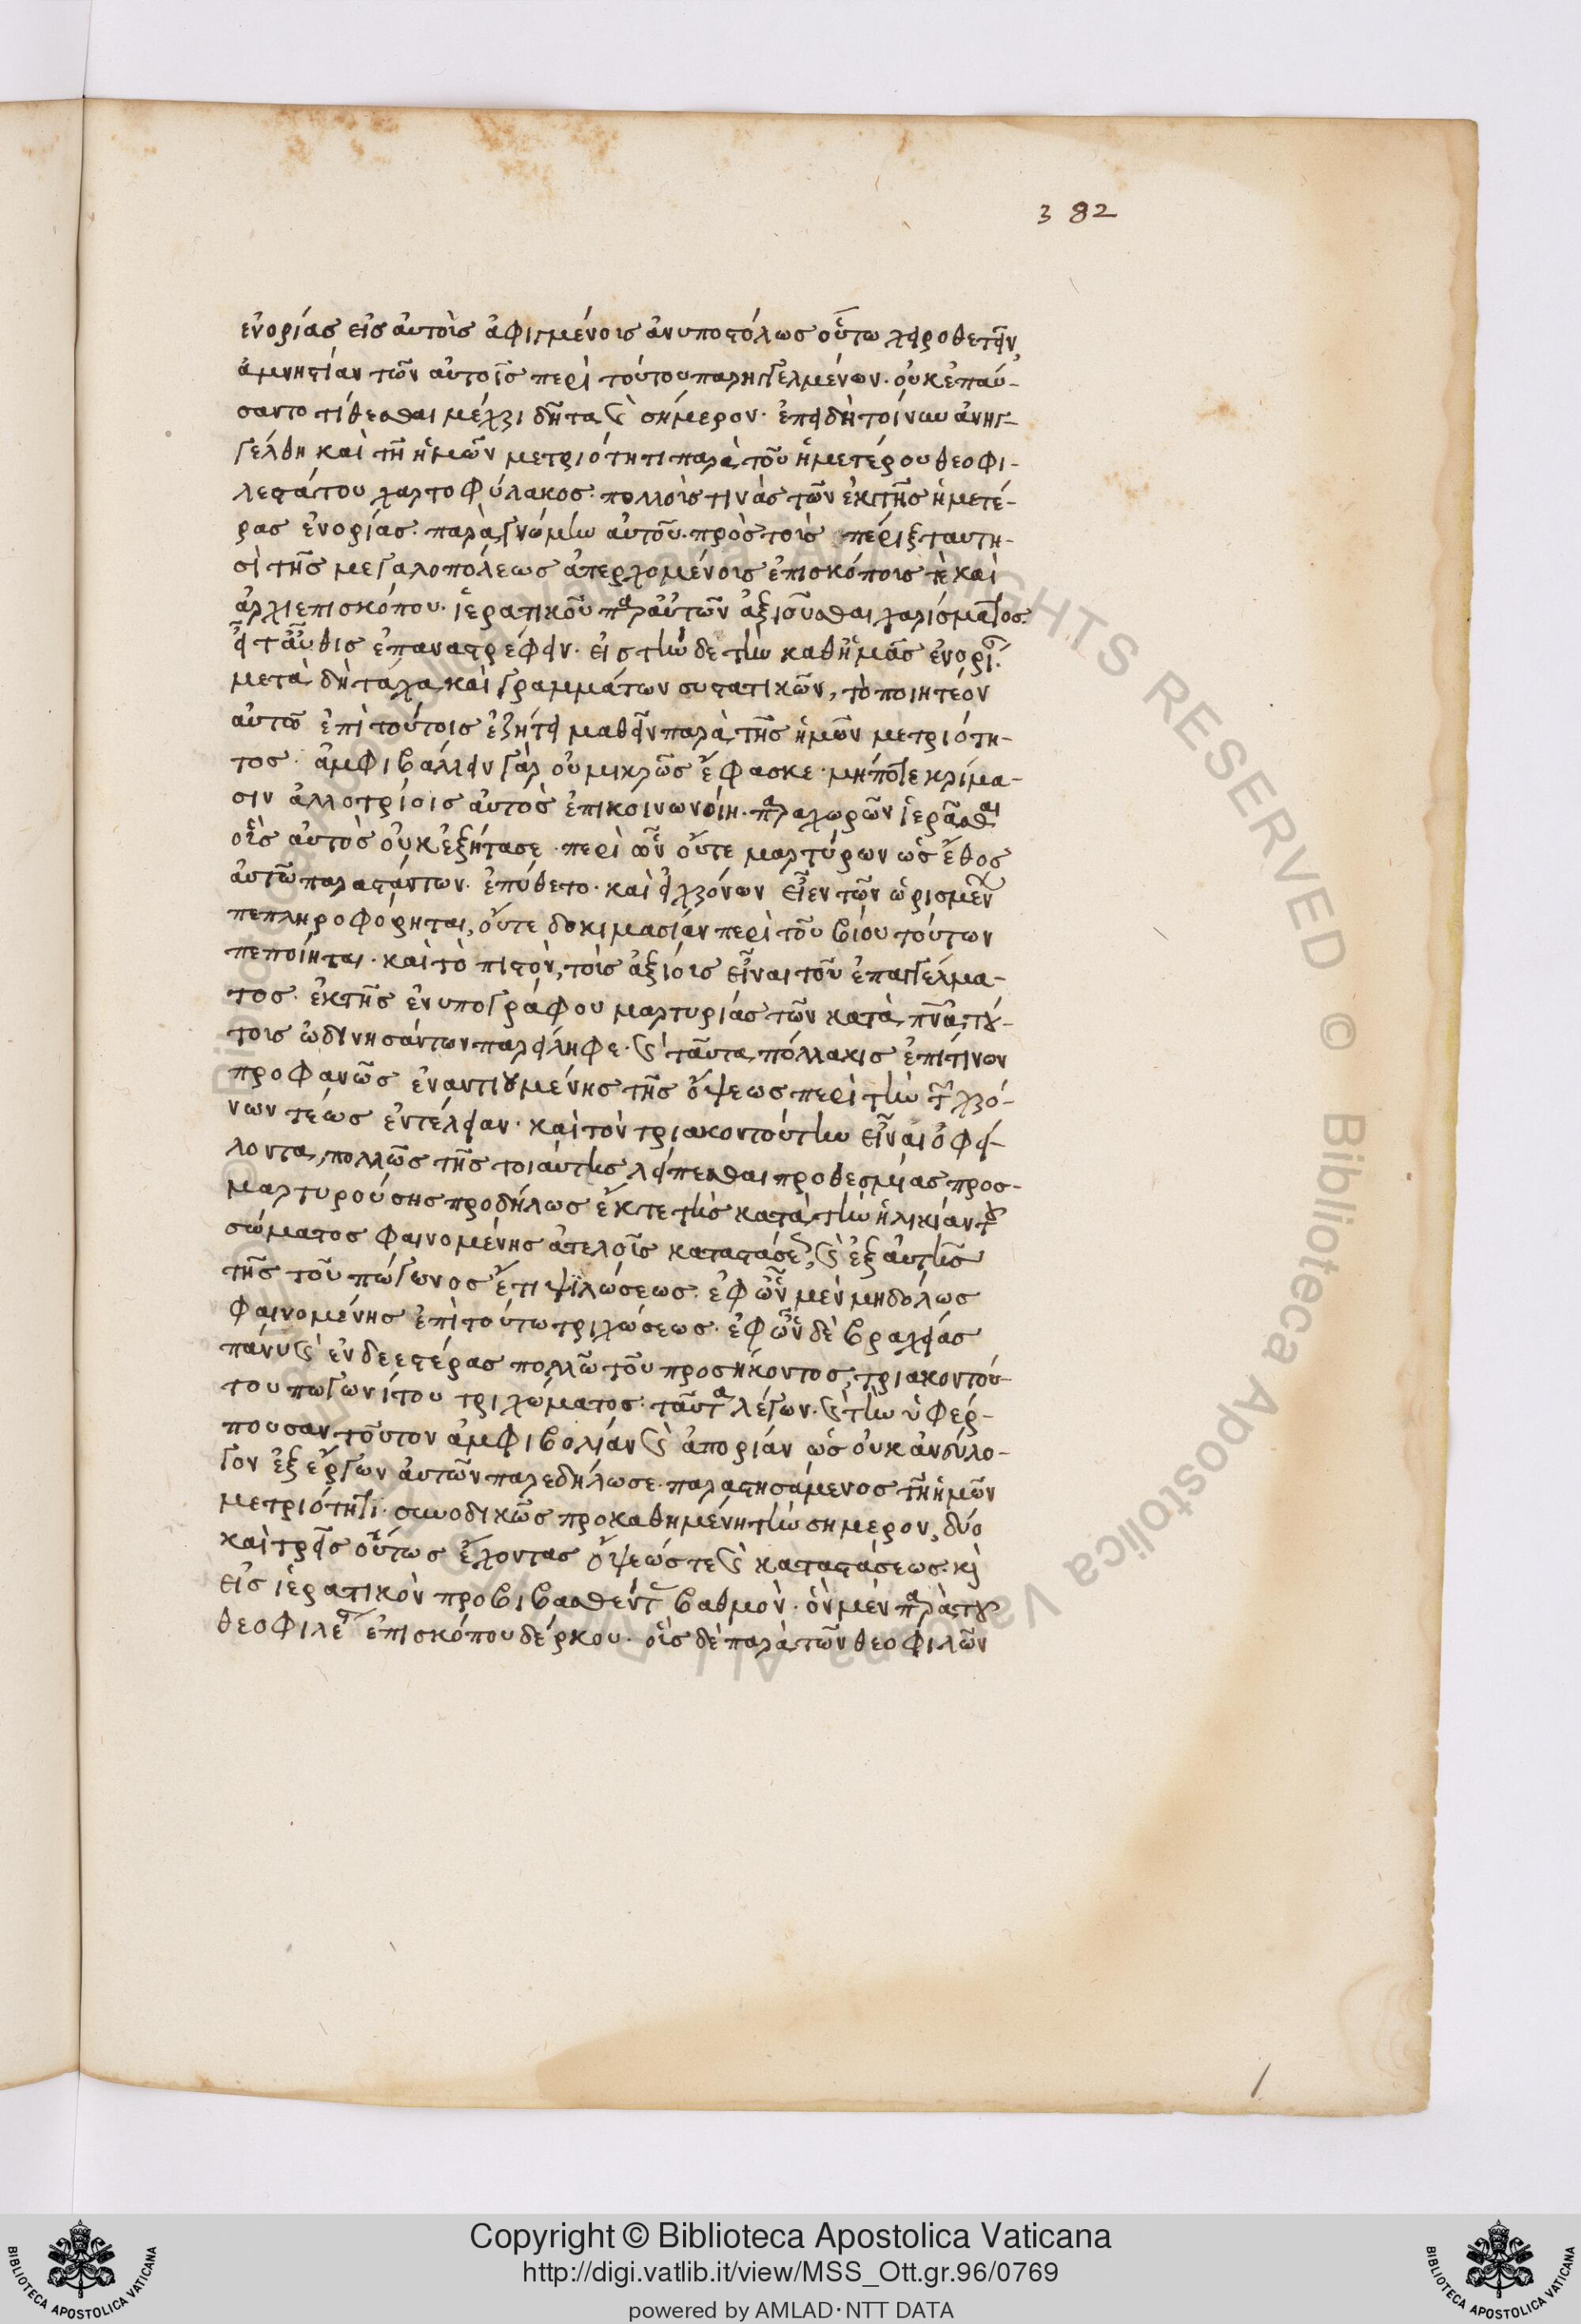 382
ἐνορίας εἰς αὐτοὺς ἀφιγμένοις ἀνυποστόλως οὕτω χειροθετεῖν,
ἀμνηστίαν τῶν αὐτοῖς περὶ τούτου παρηγγελμένων. οὐκ ἐπαύ-
σαντο τίθεσθαι μέχρι δῆτα καὶ σήμερον. ἐπειδὴ τοίνυν ἀνηγ-
γέλθη καὶ τῇ ἡμῶν μετριότητι παρὰ τοῦ ἡμετέρου θεοφι-
λεστάτου χαρτοφύλακος. πολλούς τινὰς τῶν ἐκ τῆς ἡμετέ-
ρας ἐνορίας. παρὰ γνώμην αὐτοῦ. πρὸς τοῖς πέριξ ταυτη-
σὶ τῆς μεγαλοπόλεως ἀπερχομένοις ἐπισκόποις τὲ καὶ
ἀρχιεπισκόπου. ἱερατικοῦ παρ' αὐτῶν ἀξιοῦσθαι χαρίσματος.
εἶτ' αὖθις ἐπαναστρέφειν. εἰς τὴν δε τὴν καθ' ἡμᾶς ἐνορί
μετὰ δὴ τάχα καὶ γραμμάτων συστατικῶν, τὸ ποιητέον
αὐτῶ ἐπὶ τούτοις ἐζήτει μαθεῖν παρὰ τῆς ἡμῶν μετριότη-
τος. ἀμφιβάλλειν γὰρ οὐ μικρῶς ἔφασκε. μήποτε κρίμα-
σιν ἀλλοτρίοις αὐτὸς ἐπικοινωνοίη. παραχωρῶν ἱερᾶσθαι
οὓς αὐτὸς οὐκ ἐξήτασε. περὶ ὧν οὔτε μαρτύρων ὡς ἔθος
αὐτῶ παραστάντων. ἐπύθετο. καὶ εἰ χρόνων εἶεν τῶν ὡρισμένων
πεπληροφόρηται, οὔτε δοκιμασίαν περὶ τοῦ βίου τούτων
πεποίηται. καὶ τὸ πιστὸν, τοῖς ἀξίοις εἶναι τοῦ ἐπαγγέλμα-
τος. ἐκ τῆς ἐνυπογράφου μαρτυρίας τῶν κατὰ πνα τού-
τοις ὠδινησάντων παρείληφε. καὶ ταῦτα πολλάκις ἐπί τινων
προφανῶς ἐναντιουμένης τῆς ὄψεως περὶ τὴν τῶν χρό-
νων τέως ἐντέλειαν. καὶ τὸν τριακοντούτην εἶναι ὀφεί-
λοντα, πολλῶς τῆς τοιαύτης λείπεσθαι προθεσμίας προσ-
μαρτυρούσης προδήλως ἔκ τε τῆς κατὰ τὴν ἡλικίαν τοῦ
σώματος φαινομένης ἀτελοῦς καταστάσεως, καὶ ἐξ αὐτῆς
τῆς τοῦ πώγωνος ἔτι ψιλώσεως. ἐφ' ὧν μὲν μηδόλως
φαινομένης ἐπὶ τούτω τριχώσεως. ἐφ' ὧν δὲ βραχείας
πάνυ καὶ ἐνδεεστέρας πολλῶ τοῦ προσήκοντος, τριακοντού-
του πωγωνίτου τριχώματος. ταῦτα λέγων. καὶ τὴν ὑφέρ-
πουσαν τοῦτον ἀμφιβολίαν καὶ ἀπορίαν ὡς οὐκ ἀνεύλο-
γον ἐξ ἔργων αὐτῶν παρεδήλωσε. παραστησάμενος τῇ ἡμῶν
μετριότητι. συνοδικῶς προκαθημένη τὴν σήμερον, δύο
καὶ τρεῖς οὕτως ἔχοντας ὄψεώς τε καὶ καταστάσεως. καὶ
εἰς ἱερατικὸν προβιβασθέντας βαθμόν. ὃν μὲν παρὰ τοῦ
θεοφιλεστάτου ἐπισκόπου δέρκου. οὓς δὲ παρὰ τῶν θεοφιλῶν
Copyright © Biblioteca Apostolica Vaticana
http://digi.vatlib.it/view/MSS_Ott.gr.96/0769
powered by AMLAD·NTT DATA